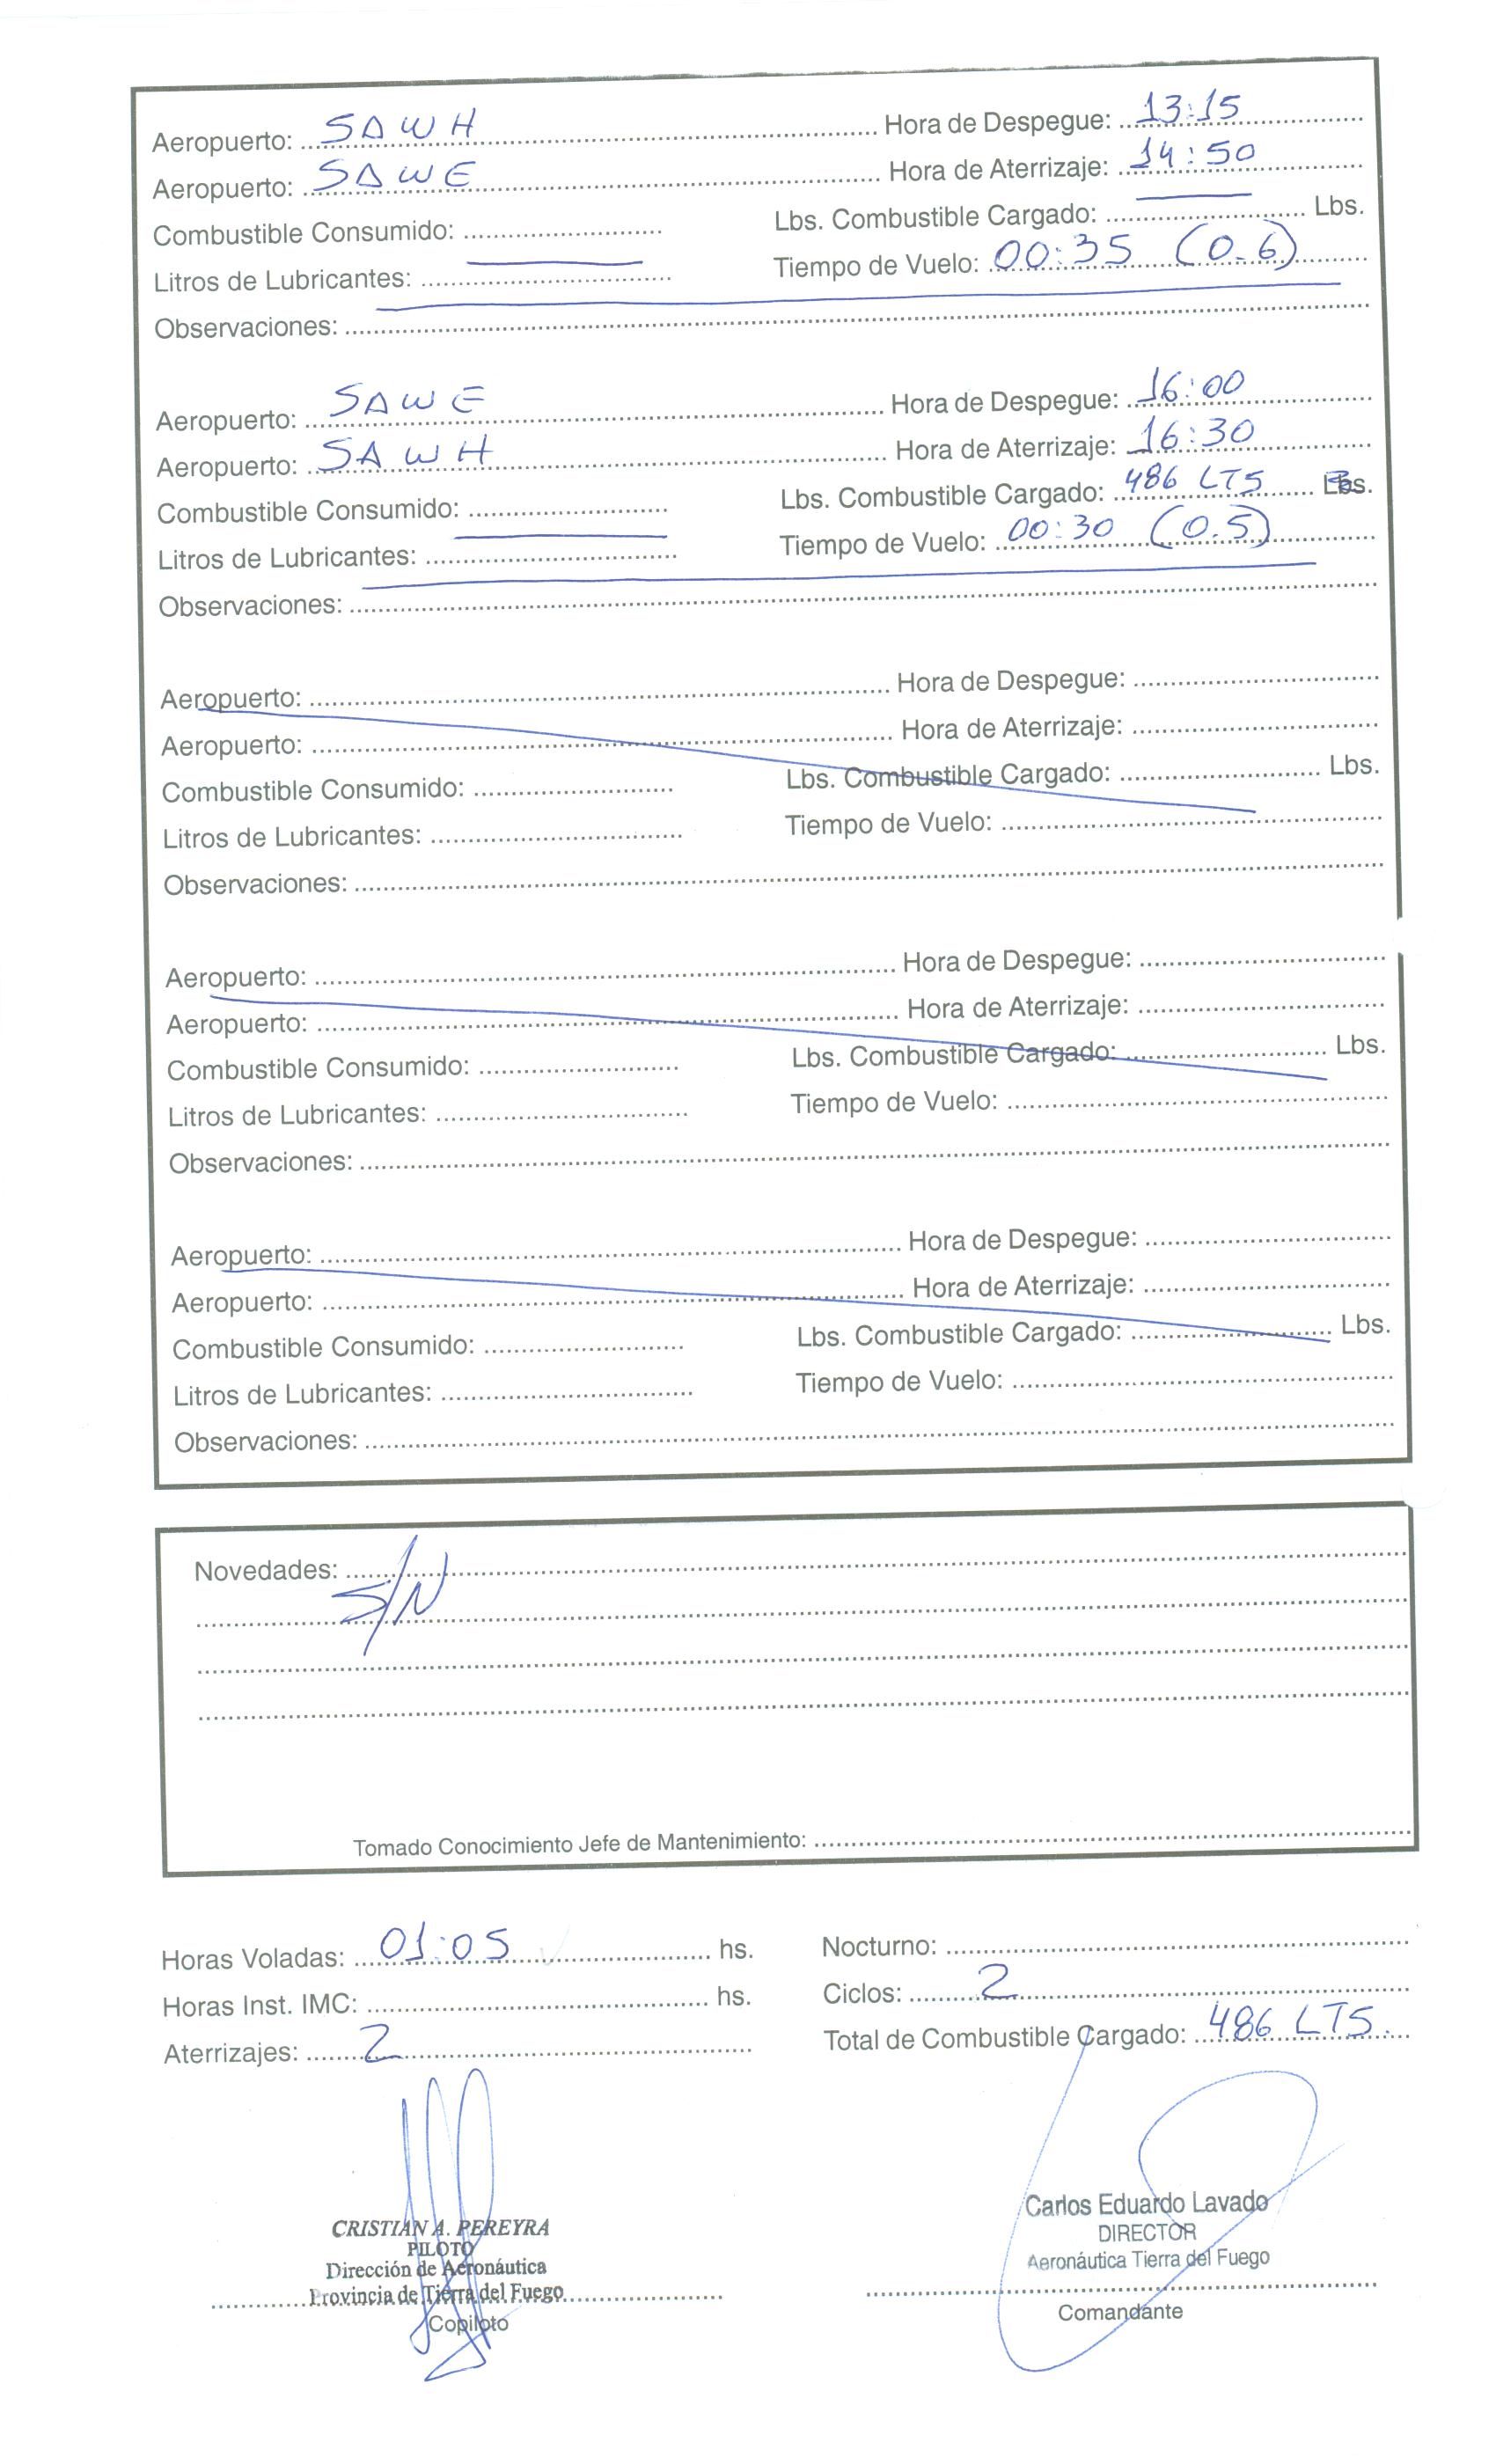 Aeropuerto: SAWH Hora de Despegue: 13:15
Aeropuerto: SAWE Hora de Aterrizaje: 14:50
Combustible Consumido: Lbs. Combustible Cargado: Lbs.
Litros de Lubricantes: Tiempo de Vuelo: 00:35 (0.6)
Observaciones:
Aeropuerto: SAWE Hora de Despegue: 16:00
Aeropuerto: SAWH Hora de Aterrizaje: 16:30
Combustible Consumido: Lbs. Combustible Cargado: 486 LTS Lbs.
Litros de Lubricantes: Tiempo de Vuelo: 00:30 (0.5)
Observaciones:
Aeropuerto: Hora de Despegue:
Aeropuerto: Hora de Aterrizaje:
Combustible Consumido: Lbs. Combustible Cargado: Lbs.
Litros de Lubricantes: Tiempo de Vuelo:
Observaciones:
Aeropuerto: Hora de Despegue:
Aeropuerto: Hora de Aterrizaje:
Combustible Consumido: Lbs. Combustible Cargado: Lbs.
Litros de Lubricantes: Tiempo de Vuelo:
Observaciones:
Aeropuerto: Hora de Despegue:
Aeropuerto: Hora de Aterrizaje:
Combustible Consumido: Lbs. Combustible Cargado: Lbs.
Litros de Lubricantes: Tiempo de Vuelo:
Observaciones:
Novedades:
S/N
Tomado Conocimiento Jefe de Mantenimiento:
Horas Voladas: 01:05 hs. Nocturno:
Horas Inst. IMC: hs. Ciclos: 2
Aterrizajes: 2 Total de Combustible Cargado: 486 LTS.
CRISTIAN A. PEREYRA
PILOTO
Dirección de Aeronáutica
Provincia de Tierra del Fuego
Copiloto
Carlos Eduardo Lavado
DIRECTOR
Aeronáutica Tierra del Fuego
Comandante